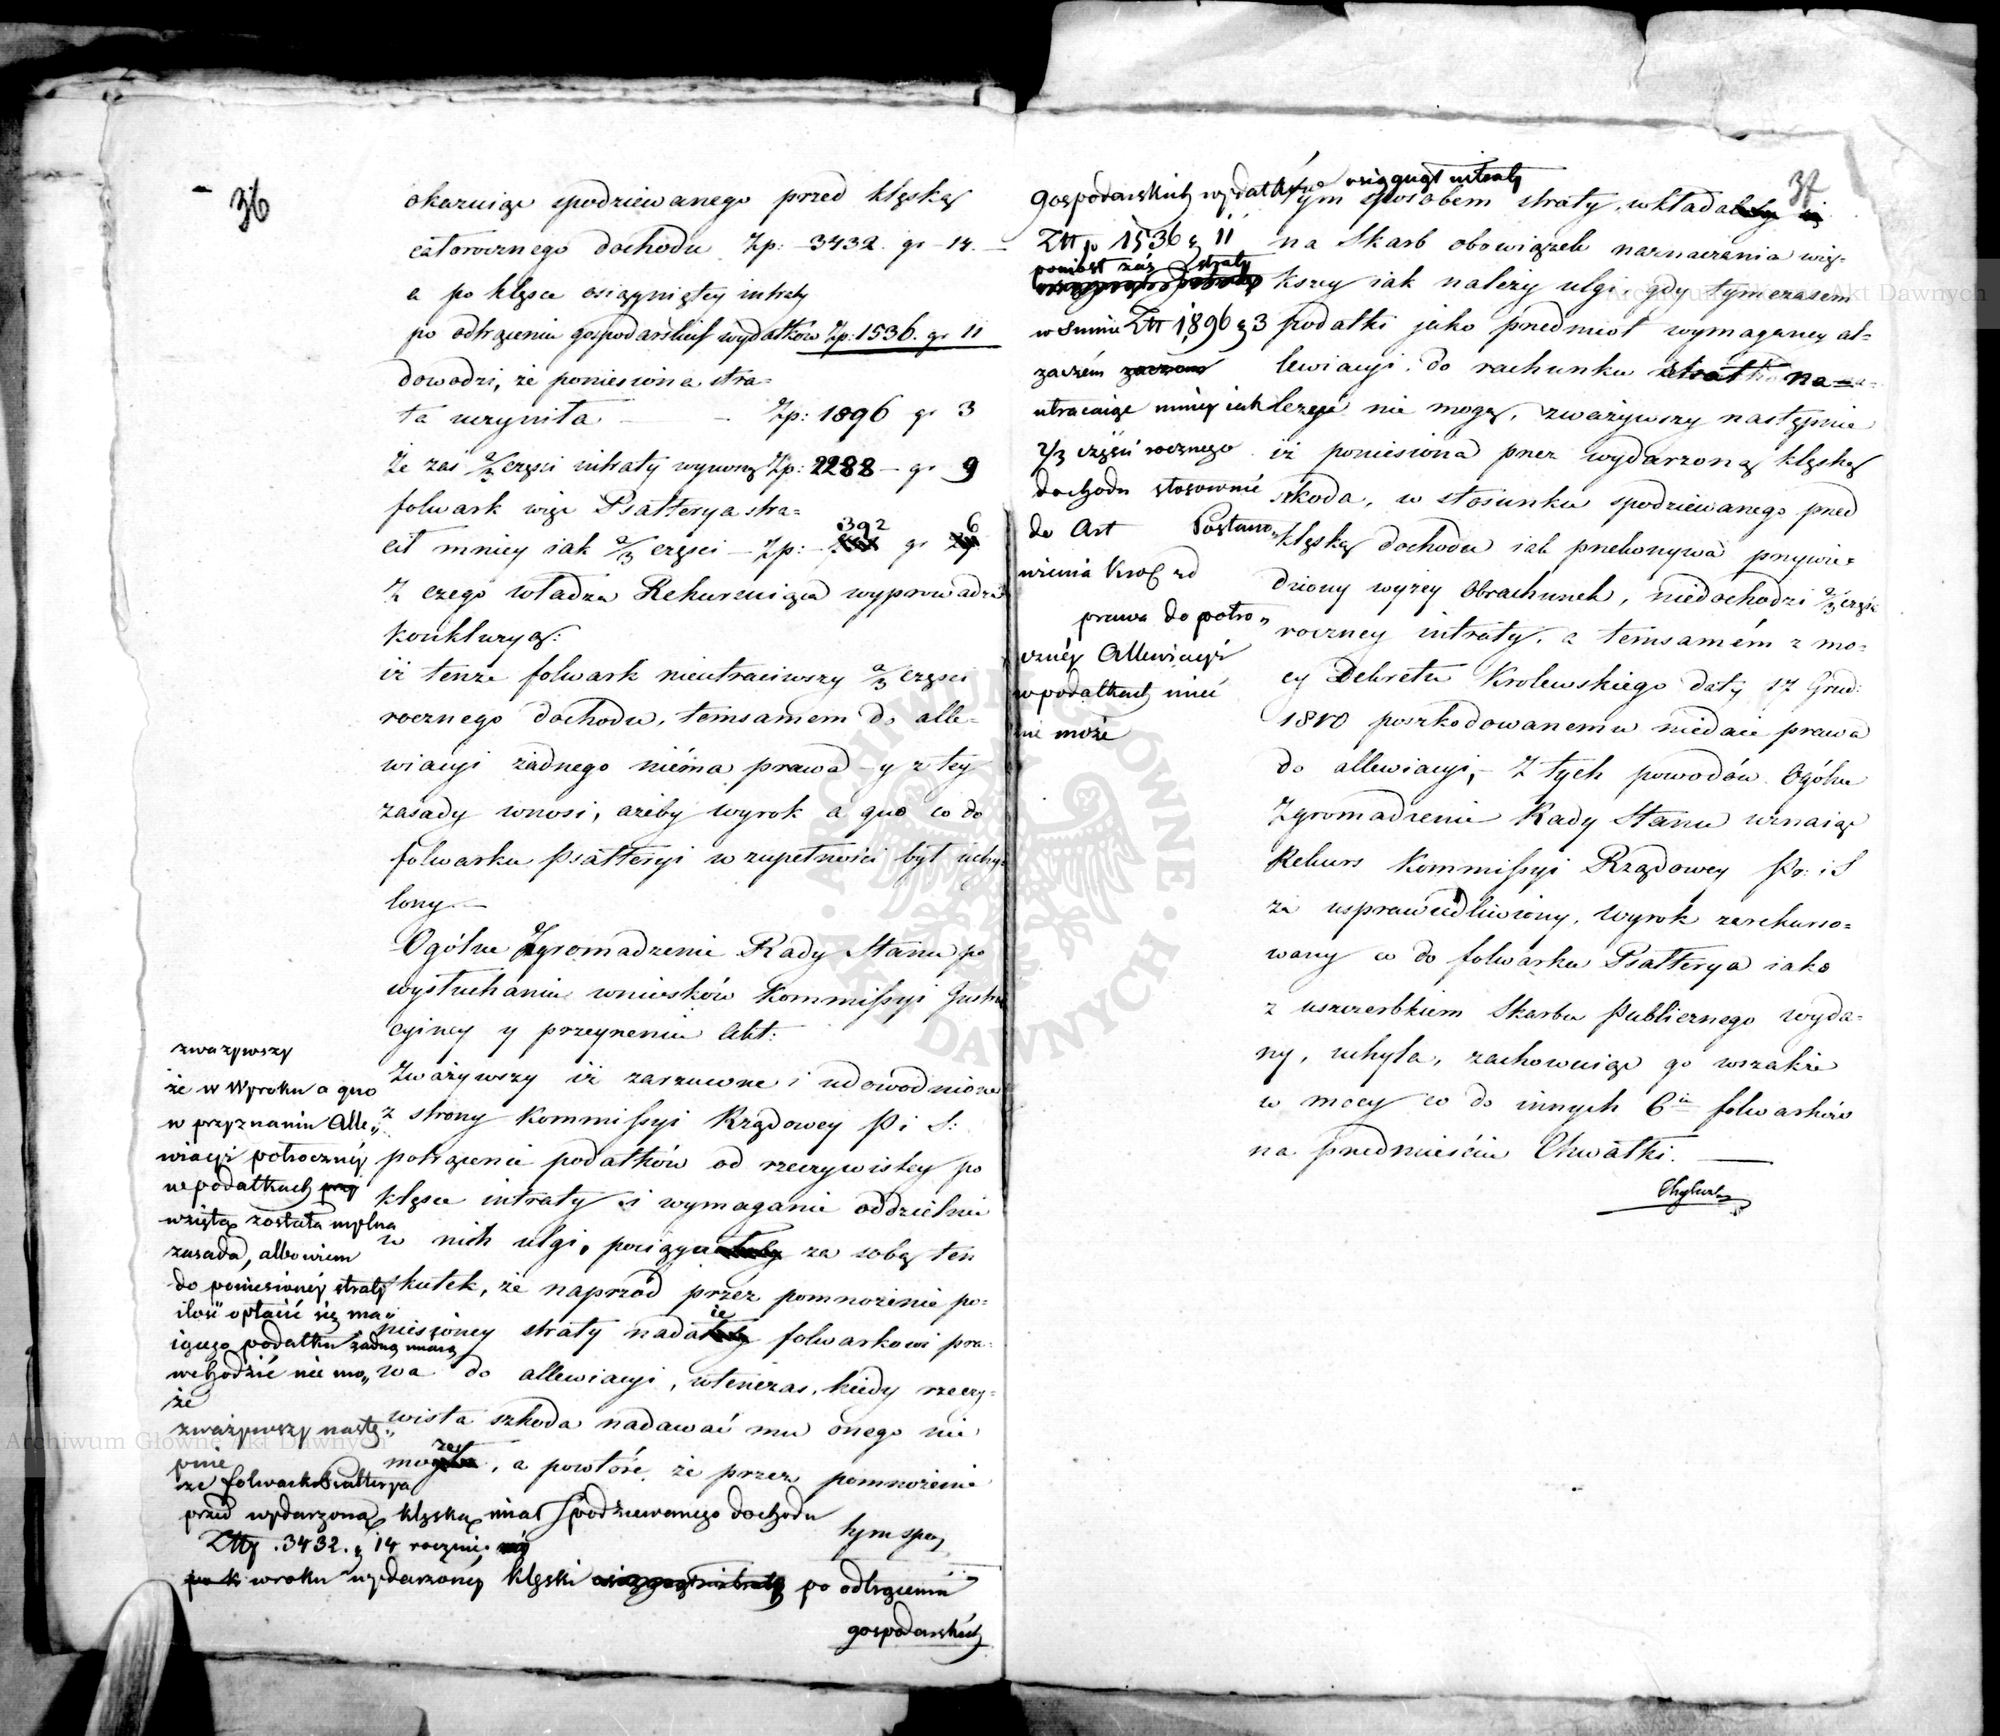 36
okazuiąc spodziewanego przed klęską
całorocznego dochodu Zp: 3432. gr 14. —
a po klęsce osiągniętey intraty
po odtrąceniu gospodarskich wydatków Zp: 1536. gr 11
dowodzi, że poniesiona stra=
ta uczyniła — Zp: 1896 gr 3
Że zaś 2/3 części intraty wynoszą Zp: 2288 — gr 9
folwark więc Psatterya stra=
cił mniey iak 2/3 części — Zp: 392 gr 6
Z czego władza Rekuruiąca wyprowadza
konkluzyą:
iż tenże folwark nieutraciwszy 2/3 części
rocznego dochodu, temsamem do alle=
wiacyi żadnego niema prawa — y z tey
zasady wnosi, ażeby wyrok a quo co do
folwarku Psatteryi w zupełności był uchy=
lony. —
Ogólne Zgromadzenie Rady Stanu po
wysłuchaniu wniosków Kommissyi Instru
cyiney y przeyrzeniu Akt:
Zważywszy iż zarzucone i udowodnione
z strony Kommissyi Rządowey P. i S:
potrącenie podatków od rzeczywistey po
klęsce intraty i wymaganie oddzielnie
w nich ulgi, pociąga za sobą ten
skutek, że naprzód przez pomnożenie po=
niesioney straty nadaie folwarkowi pra=
wa do allewiacyi, wtenczas, kiedy rzeczy=
wista szkoda nadawać mu onego nie
może, a powtóre, że przez pomnożenie
tym spo„
zważywszy
że w Wyroku a quo
w przyznaniu Alle„
wiacyi półroczney
w podatkach
wziętą została mylna
zasada, albowiem
do poniesioney straty
ilość opłacić się ma„
iącego podatku żadną miarą
wchodzić nie mo„
że
zważywszy nastę„
pnie
że folwark Psatterya
przed wydarzoną klęską miał spodziewanego dochodu
Złłp. 3432. g 14 rocznie
w roku wydarzoney klęski po odtrąceniu
gospodarskich
37
gospodarskich wydatków osiągnął intraty
Złłp 1536 g 11
poniósł zaś straty
w summie Złł 1896 g 3
zaczém
utracaiąc mniey iak
2/3 części rocznego
dochodu stosownie
do Art Postano„
wienia Król zd
prawa do półro„
czney Allewiacyi
w podatkach mieć
nie może
tym sposobem straty, wkłada
na Skarb obowiązek naznaczenia wię=
kszey iak należy ulgi, gdy tymczasem
podatki jako przedmiot wymaganey al=
lewiacyi, do rachunku strat na=
leżeć nie mogą, zważywszy następnie
iż poniesiona przez wydarzoną klęskę
szkoda, w stosunku spodziewanego przed
klęską dochodu iak przekonywa przywie=
dziony wyżey Obrachunek, niedochodzi 2/3 części
roczney intraty, a temsamém z mo=
cy Dekretu Krolewskiego daty 17 Grud:
1810 poszkodowanemu niedaie prawa
do allewiacyi, — Z tych powodów Ogólne
Zgromadzenie Rady Stanu uznaiąc
Rekurs Kommissyi Rządowey Pr: i S
za usprawiedliwiony, wyrok zarekurso=
wany co do folwarku Psatterya iako
z uszczerbkiem Skarbu Publicznego wyda=
ny, uchyla, zachowuiąc go wszakże
w mocy co do innych 6iu folwarków
na przedmieściu Chwałki. —
Archiwum Główne Akt Dawnych
Archiwum Główne Akt Dawnych
ARCHIWUM GŁÓWNE · AKT DAWNYCH ·